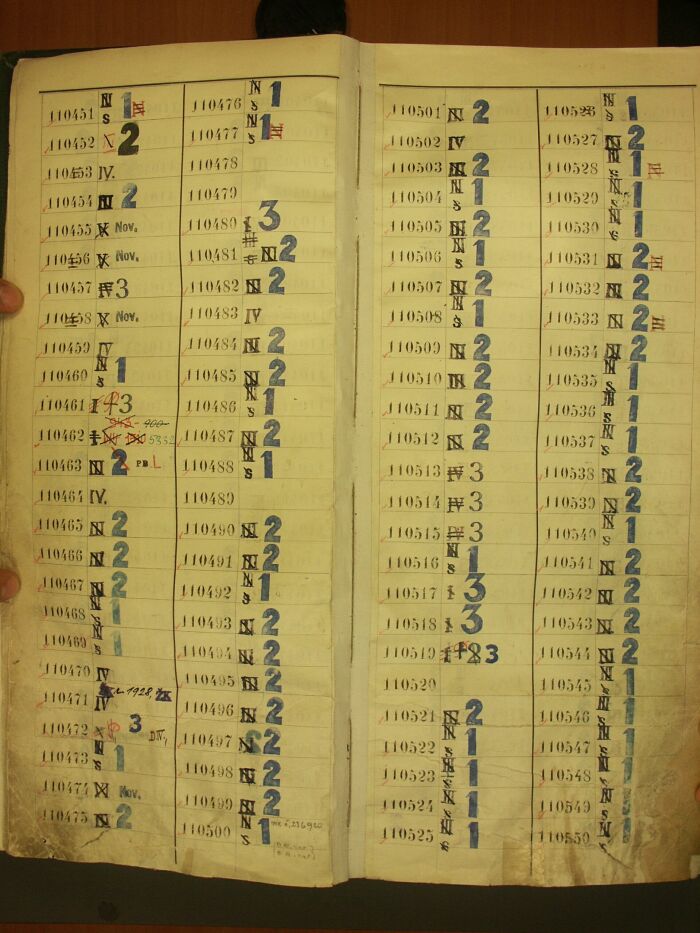 110451 N S 1 IV
110452 2
110453 IV.
110454 N 2
110455 X Nov.
110456 X Nov.
110457 IV 3
110458 X Nov.
110459 IV
110460 N S 1
110461 I 3
900-
110462 I 5332
110463 N 2 PB L
110464 IV.
110465 N 2
110466 N 2
110467 N 2
110468 N S 1
110469 N S 1
110470 IV
1928,
110471 IV
110472 3 DIV,
110473 N S 1
110474 X Nov.
110475 N 2
110476 N S 1
110477 N S 1
110478
110479
110480 I 3
110481 N 2
110482 N 2
110483 IV
110484 N 2
110485 N 2
110486 N S 1
110487 N 2
110488 N S 1
110489
110490 N 2
110491 N 2
110492 N S 1
110493 N 2
110494 N 2
110495 N 2
110496 N 2
110497 N 2
110498 N 2
110499 N 2
110500 N S 1
110501 N 2
110502 IV
110503 N 2
110504 N S 1
110505 N 2
110506 N S 1
110507 N 2
110508 N S 1
110509 N 2
110510 N 2
110511 N 2
110512 N 2
110513 IV 3
110514 IV 3
110515 IV 3
110516 N S 1
110517 I 3
110518 I 3
110519 I 3
110520
110521 N 2
110522 N S 1
110523 N S 1
110524 N S 1
110525 N S 1
110526 N S 1
110527 N 2
110528 N S 1
110529 N S 1
110530 N S 1
110531 N 2
110532 N 2
110533 N 2
110534 N 2
110535 N S 1
110536 N S 1
110537 N S 1
110538 N 2
110539 N 2
110540 N S 1
110541 N 2
110542 N 2
110543 N 2
110544 N 2
110545 N S 1
110546 N S 1
110547 N S 1
110548 N S 1
110549 N S 1
110550 N S 1